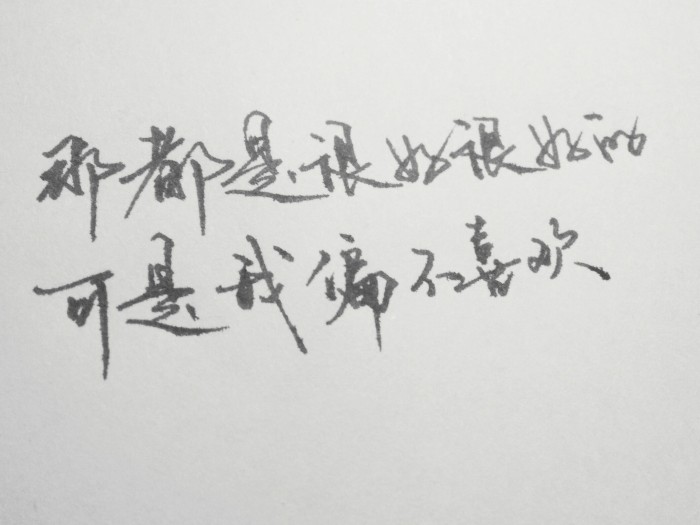 那都是很好很好的
可是我偏不喜欢